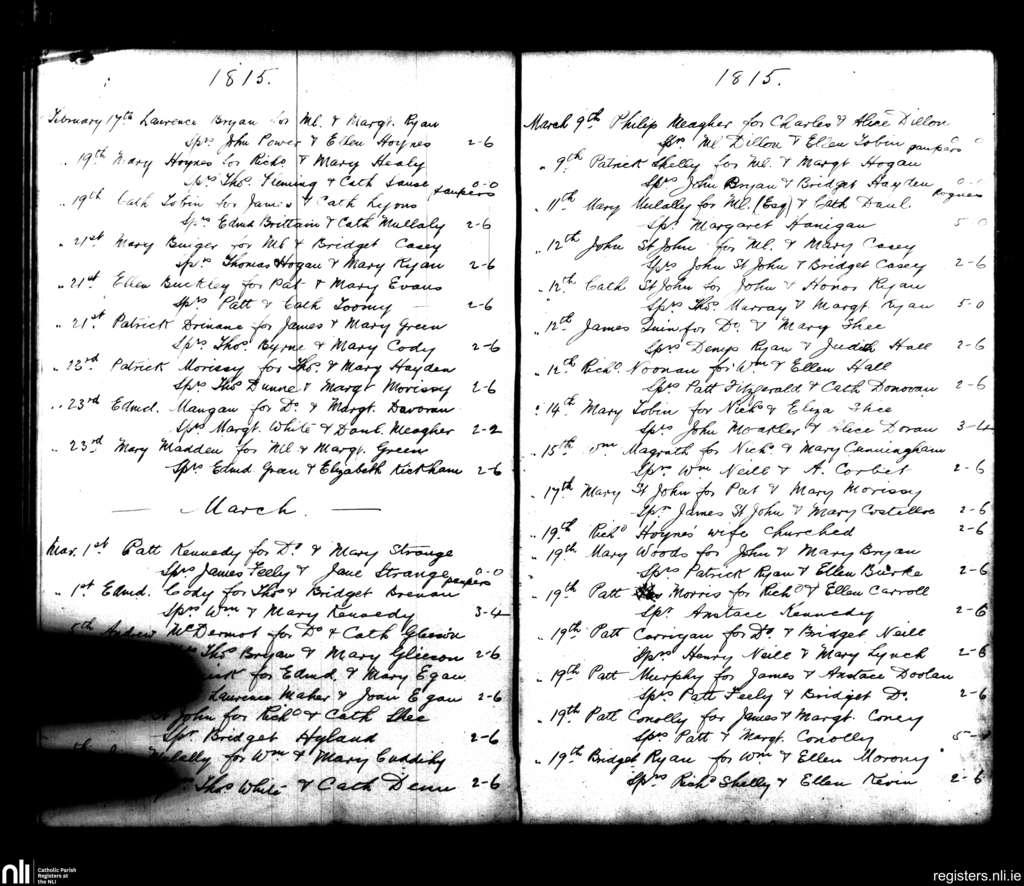 1815.
February 17th Laurence Bryan for Ml. & Margt. Ryan
Sprs John Power & Ellen Hoynes 2-6
" 19th Mary Hoynes for Richd & Mary Healy
Thos. Fleming & Cath 0-0 paupers
" 19th Cath Tobin for James & Cath Lyons
Sprs Edmd Brittain & Cath Mullaly 2-6
" 21st Mary for Ml & Bridget Casey
Sprs Thomas Hogan & Mary Ryan 2-6
" 21st Ellen Buckley for Pat & Mary Evans
Sprs Patt & Cath Toomy 2-6
" 21st Patrick Drinane for James & Mary Green
Sprs Thos. Byrne & Mary Cody 2-6
" 23rd Patrick Morissy for Thos. & Mary Hayden
Sprs Thos Dunne & Margt Morissy 2-6
" 23rd Edmd. Mangan for Do & Margt. Davoran
Sprs Margt. White & Danl. Meagher 2-2
" 23rd Mary Madden for Ml & Margt. Green
Sprs Edmd Green & Elizabeth Kickham 2-6
— March. —
Mar. 1st Patt Kennedy for Do & Mary Strange
Sprs James Feely & Jane Strange 0-0 paupers
" 1st Edmd. Cody for Thos & Bridget Brenan
Sprs Wm & Mary Kennedy 3-4
5th Andrew McDermot for Do & Cath Gleeson
Thos Bryan & Mary Glieeson 2-6
for Edmd & Mary Egan
Laurence Maher & Joan Egan 2-6
St John for Richd & Cath Shee
Spr. Bridget Hyland 2-6
for Wm & Mary Cuddihy
Thos White & Cath 2-6
1815.
March 9th Philip Meagher for Charles & Alice Dillon
Sprs Ml Dillon & Ellen Tobin paupers
" 9th Patrick Shelly for Ml. & Margt Hogan
Sprs John Bryan & Bridget Hayden
" 11th Mary Mulally for Ml. (Esq) & Cath Danl.
Spr. Margaret Hanigan 5 0
" 12th John St John for Ml. & Mary Casey
Sprs John St John & Bridget Casey 2-6
" 12th Cath St John for John & Honor Ryan
Sprs Thos. Murray & Margt Ryan 5-0
" 12th James Quin for Do. & Mary Shee
Sprs Denys Ryan & Judith Hall 2-6
" 12th Richd. Noonan for Wm & Ellen Hall
Sprs Patt Fitzgerald & Cath Donovan 2-6
" 14th Mary Tobin for Nichd & Eliza Shee
Sprs John Moakler & Alice Doran 3-4
" 15th Wm Magrath for Nichs & Mary Cunningham
Sprs Wm Neill & A. Corbet 2-6
" 17th Mary St John for Pat & Mary Morissy
Spr James St John & Mary Costelloe 2-6
" 19th Richd Hoyne's wife churched 2-6
" 19th Mary Woods for John & Mary Bryan
Sprs Patrick Ryan & Ellen Burke 2-6
" 19th Patt Morris for Richd & Ellen Carroll
Spr. Anstace Kennedy 2-6
" 19th Patt Corrigan for Do. & Bridget Neill
Sprs Henry Neill & Mary Lynch 2-6
" 19th Patt Murphy for James & Anstace Doolan
Sprs Patt Feely & Bridget Do. 2-6
" 19th Patt Conolly for James & Margt. Coney
Sprs Patt & Margt. Conolly
" 19th Bridget Ryan for Wm & Ellen Morony
Sprs Richd Shelly & Ellen Kevin 2-6
nli
Catholic Parish
Registers at
the NLI
registers.nli.ie